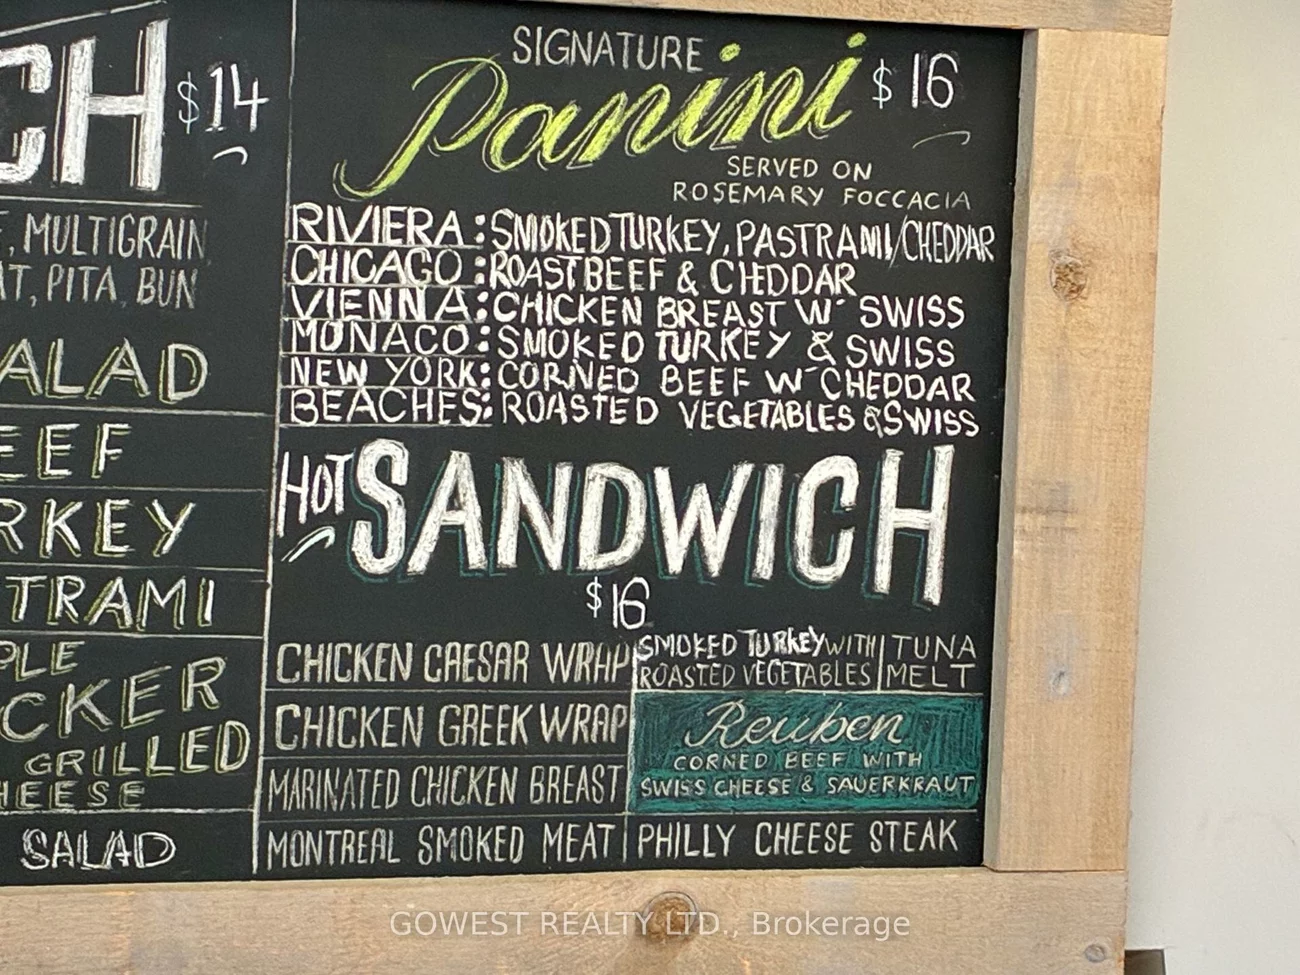 CH $14
MULTIGRAIN
PITA BUN
SALAD
TRAMI
GRILLED
SALAD
SIGNATURE
Panini $16
SERVED ON
ROSEMARY FOCCACIA
RIVIERA: SMOKED TURKEY, PASTRAMI/CHEDDAR
CHICAGO: ROAST BEEF & CHEDDAR
VIENNA: CHICKEN BREAST W' SWISS
MONACO: SMOKED TURKEY & SWISS
NEW YORK: CORNED BEEF W' CHEDDAR
BEACHES: ROASTED VEGETABLES & SWISS
HOT SANDWICH
$16
CHICKEN CAESAR WRAP
CHICKEN GREEK WRAP
MARINATED CHICKEN BREAST
MONTREAL SMOKED MEAT
SMOKED TURKEY WITH
ROASTED VEGETABLES
TUNA
MELT
Reuben
CORNED BEEF WITH
SWISS CHEESE & SAUERKRAUT
PHILLY CHEESE STEAK
GOWEST REALTY LTD., Brokerage